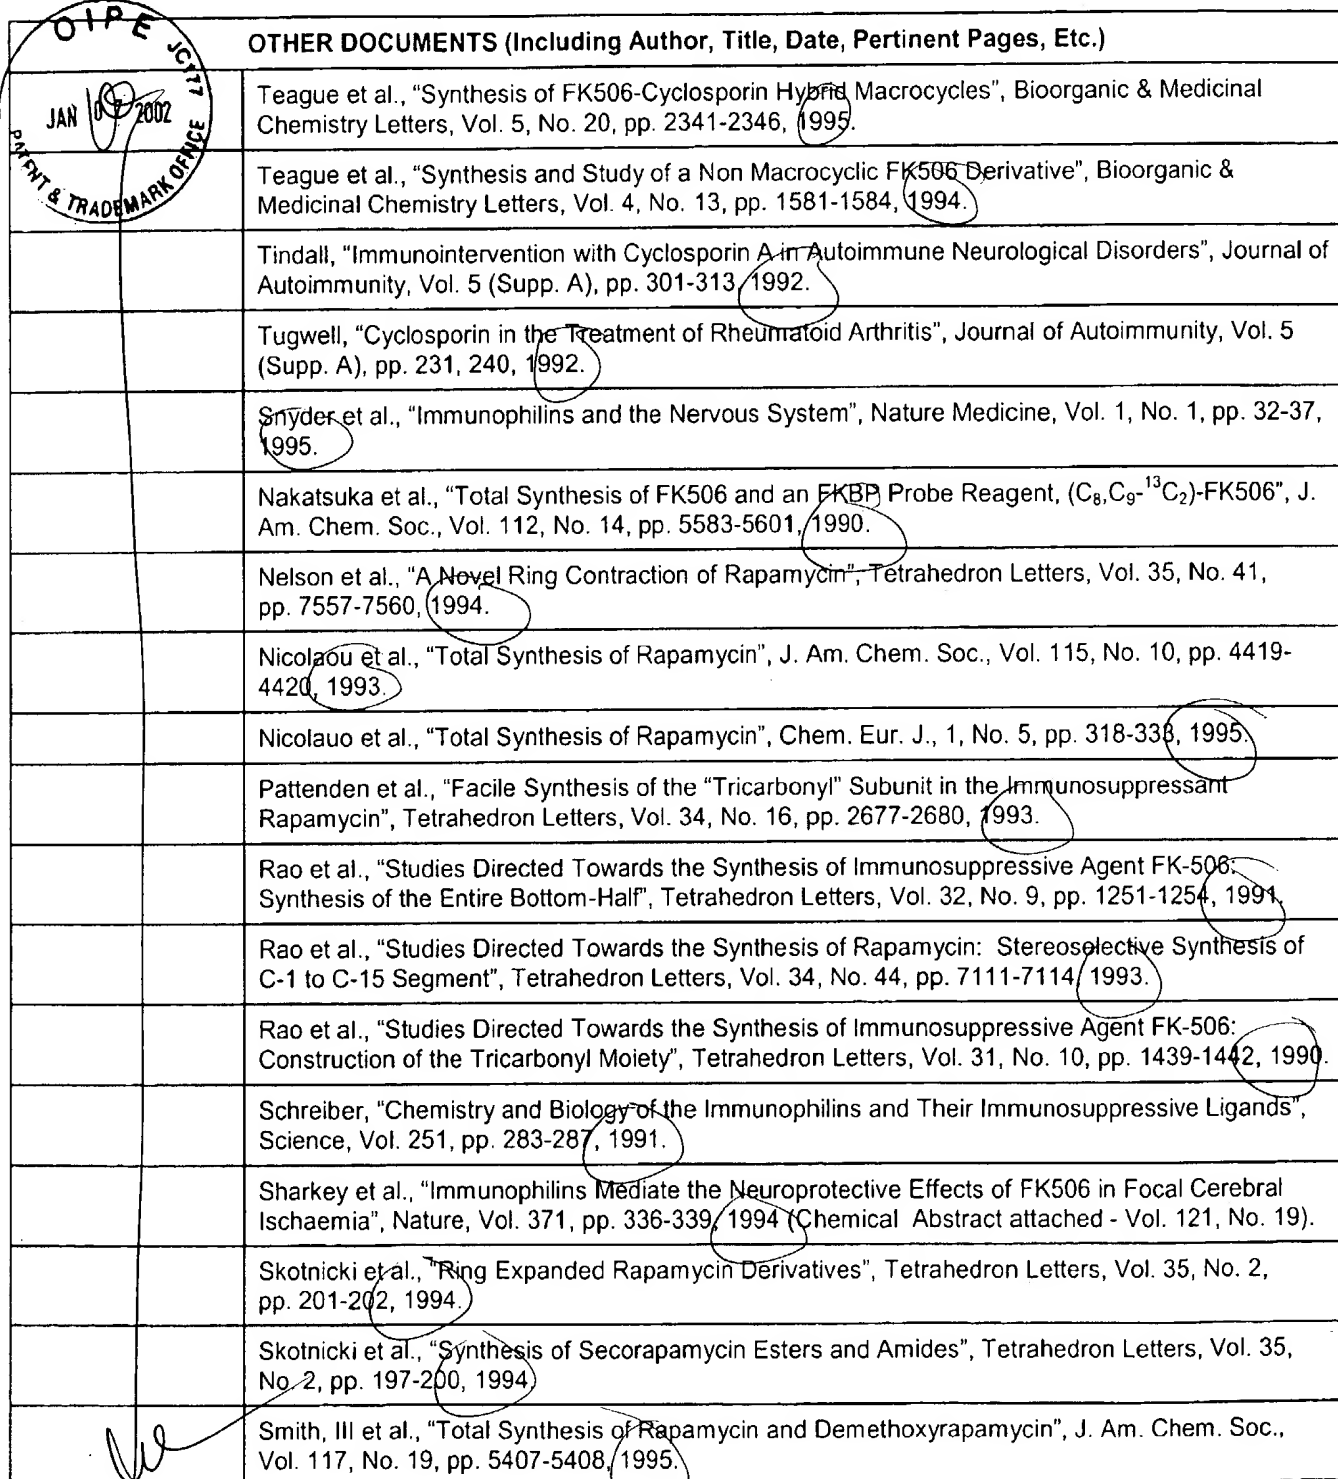 OIPE JC177
JAN 07 2002
PATENT & TRADEMARK OFFICE
OTHER DOCUMENTS (Including Author, Title, Date, Pertinent Pages, Etc.)
Teague et al., “Synthesis of FK506-Cyclosporin Hybrid Macrocycles”, Bioorganic & Medicinal
Chemistry Letters, Vol. 5, No. 20, pp. 2341-2346, 1995.
Teague et al., “Synthesis and Study of a Non Macrocyclic FK506 Derivative”, Bioorganic &
Medicinal Chemistry Letters, Vol. 4, No. 13, pp. 1581-1584, 1994.
Tindall, “Immunointervention with Cyclosporin A in Autoimmune Neurological Disorders”, Journal of
Autoimmunity, Vol. 5 (Supp. A), pp. 301-313, 1992.
Tugwell, “Cyclosporin in the Treatment of Rheumatoid Arthritis”, Journal of Autoimmunity, Vol. 5
(Supp. A), pp. 231, 240, 1992.
Snyder et al., “Immunophilins and the Nervous System”, Nature Medicine, Vol. 1, No. 1, pp. 32-37,
1995.
Nakatsuka et al., “Total Synthesis of FK506 and an FKBP Probe Reagent, (C₈,C₉-¹³C₂)-FK506”, J.
Am. Chem. Soc., Vol. 112, No. 14, pp. 5583-5601, 1990.
Nelson et al., “A Novel Ring Contraction of Rapamycin”, Tetrahedron Letters, Vol. 35, No. 41,
pp. 7557-7560, 1994.
Nicolaou et al., “Total Synthesis of Rapamycin”, J. Am. Chem. Soc., Vol. 115, No. 10, pp. 4419-
4420, 1993.
Nicolauo et al., “Total Synthesis of Rapamycin”, Chem. Eur. J., 1, No. 5, pp. 318-333, 1995.
Pattenden et al., “Facile Synthesis of the “Tricarbonyl” Subunit in the Immunosuppressant
Rapamycin”, Tetrahedron Letters, Vol. 34, No. 16, pp. 2677-2680, 1993.
Rao et al., “Studies Directed Towards the Synthesis of Immunosuppressive Agent FK-506:
Synthesis of the Entire Bottom-Half”, Tetrahedron Letters, Vol. 32, No. 9, pp. 1251-1254, 1991.
Rao et al., “Studies Directed Towards the Synthesis of Rapamycin: Stereoselective Synthesis of
C-1 to C-15 Segment”, Tetrahedron Letters, Vol. 34, No. 44, pp. 7111-7114, 1993.
Rao et al., “Studies Directed Towards the Synthesis of Immunosuppressive Agent FK-506:
Construction of the Tricarbonyl Moiety”, Tetrahedron Letters, Vol. 31, No. 10, pp. 1439-1442, 1990.
Schreiber, “Chemistry and Biology of the Immunophilins and Their Immunosuppressive Ligands”,
Science, Vol. 251, pp. 283-287, 1991.
Sharkey et al., “Immunophilins Mediate the Neuroprotective Effects of FK506 in Focal Cerebral
Ischaemia”, Nature, Vol. 371, pp. 336-339, 1994 (Chemical Abstract attached - Vol. 121, No. 19).
Skotnicki et al., “Ring Expanded Rapamycin Derivatives”, Tetrahedron Letters, Vol. 35, No. 2,
pp. 201-202, 1994.
Skotnicki et al., “Synthesis of Secorapamycin Esters and Amides”, Tetrahedron Letters, Vol. 35,
No. 2, pp. 197-200, 1994
Smith, III et al., “Total Synthesis of Rapamycin and Demethoxyrapamycin”, J. Am. Chem. Soc.,
Vol. 117, No. 19, pp. 5407-5408, 1995.